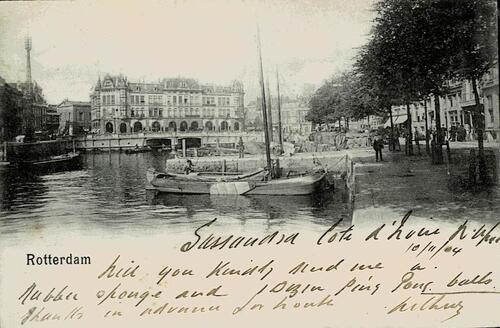 Sassandra Cote d'Ivoire
10/11/04
Rotterdam
Will you kindly send me a
Rubber sponge and 1 Dozen Ping Pong balls.
Thanks in advance for both Arthur